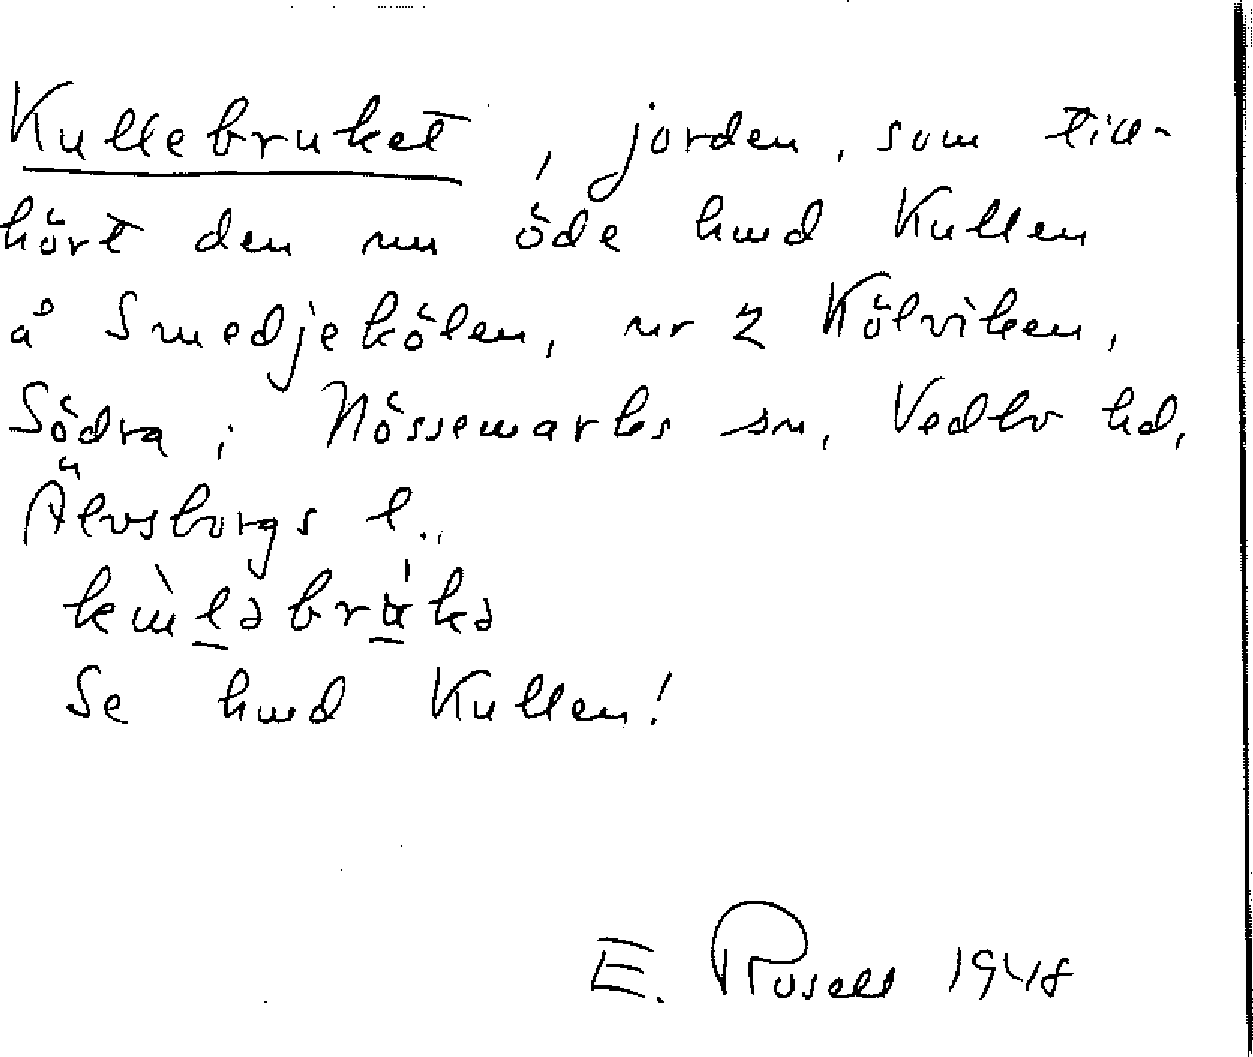 Kullebruket, jorden, som till-
hört den nu öde hmd Kullen
å Smedjekölen, nr 2 Kölviken,
Södra i Nössemarks sn, Vedbo hd,
Älvsborgs l..
Se hmd Kullen!
E. Rosell 1948